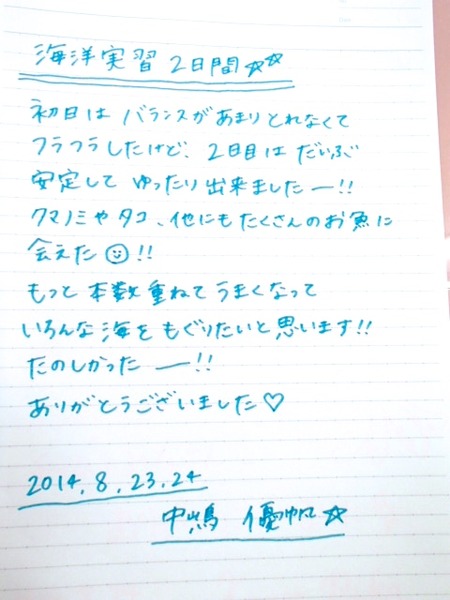 海洋実習 2日間☆☆
初日は バランスが あまり とれなくて
フラフラしたけど、2日目は だいぶ
安定して ゆったり 出来ました ー!!
クマノミや タコ、他にも たくさんの お魚に
会えた ☺ !!
もっと 本数 重ねて うまくなって
いろんな 海を もぐりたいと 思います!!
たのしかった ー!!
ありがとうございました♡
2014.8.23.24
中嶋 優帆☆